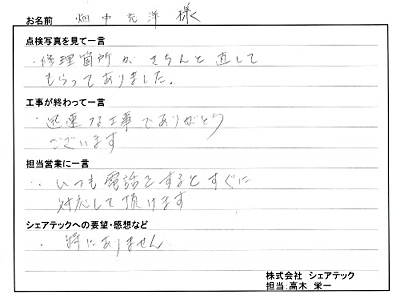 お名前 畑中 充洋 様
点検写真を見て一言
・修理箇所が きちんと直して
もらってありました。
工事が終わって一言
・迅速な工事でありがとう
ございます
担当営業に一言
・いつも電話をするとすぐに
対応して頂けます
シェアテックへの要望・感想など
・特にありません
株式会社 シェアテック
担当:高木 栄一